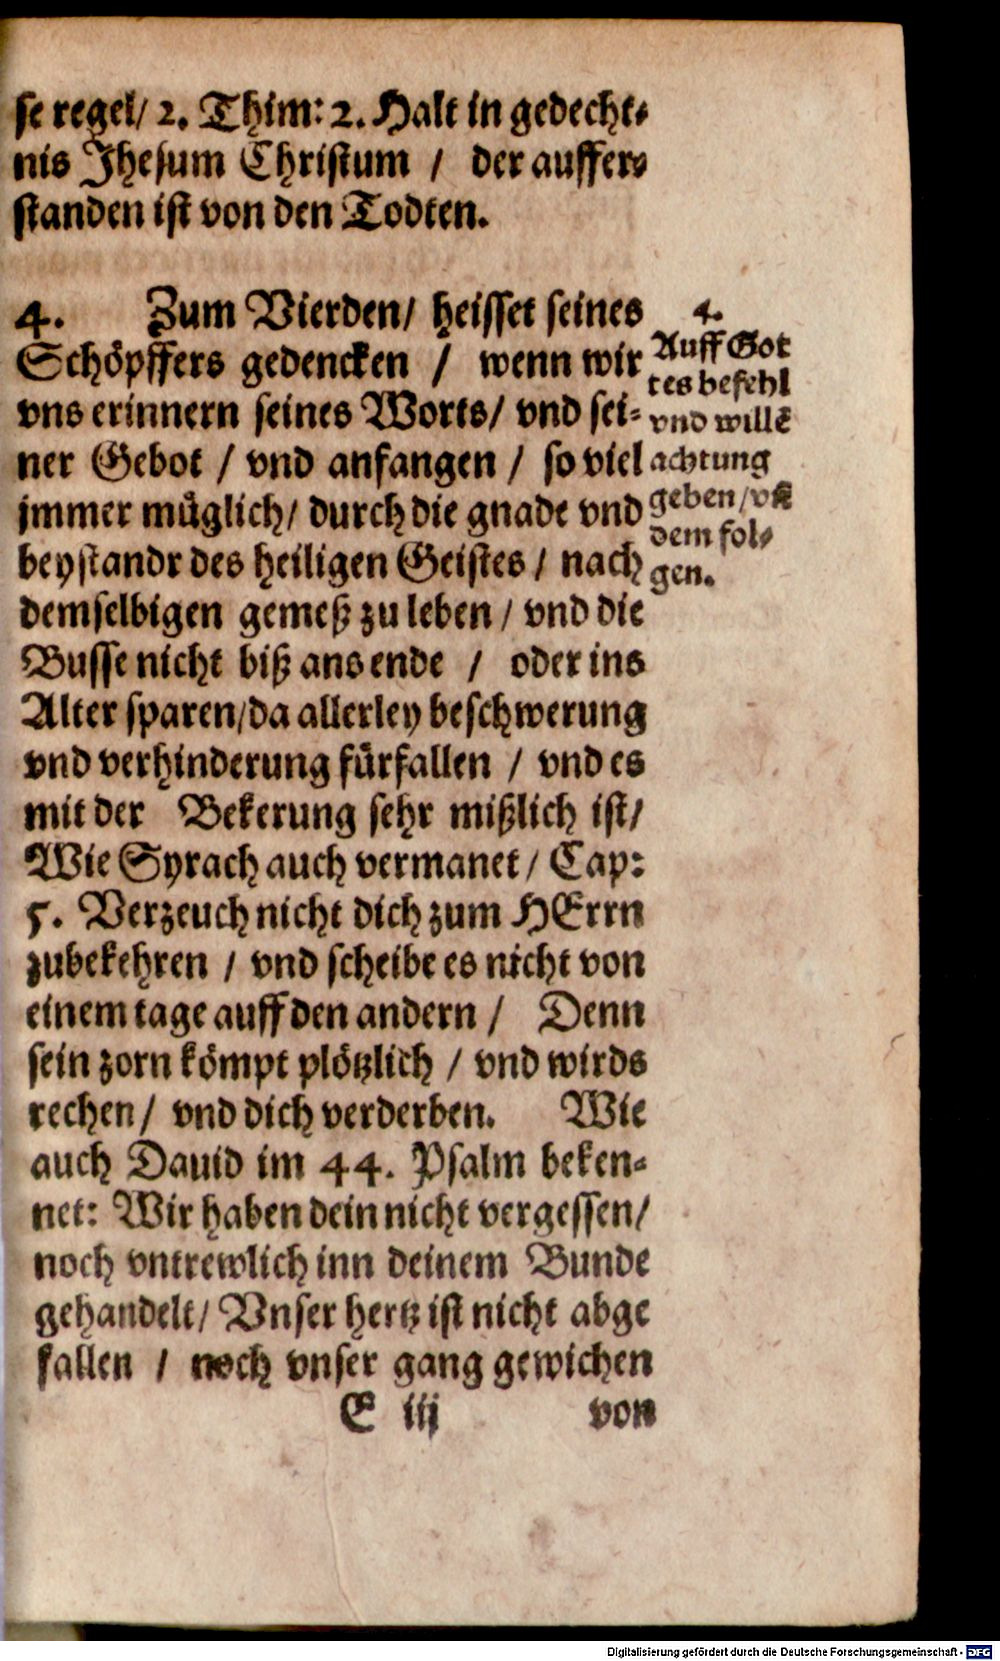 se regel/ 2. Thim: 2. Halt in gedecht-
nis Jhesum Christum / der auffer-
standen ist von den Todten.
4. Zum Vierden/ heisset seines
Schöpffers gedencken / wenn wir
vns erinnern seines Worts/ vnd sei-
ner Gebot / vnd anfangen / so viel
jmmer müglich/ durch die gnade vnd
beystandt des heiligen Geistes / nach
demselbigen gemeß zu leben / vnd die
Busse nicht biß ans ende / oder ins
Alter sparen/ da allerley beschwerung
vnd verhinderung fürfallen / vnd es
mit der Bekerung sehr mißlich ist/
Wie Syrach auch vermanet / Cap:
5. Verzeuch nicht dich zum HErrn
zubekehren / vnd scheibe es nicht von
einem tage auff den andern / Denn
sein zorn kömpt plötzlich / vnd wirds
rechen / vnd dich verderben. Wie
auch Dauid im 44. Psalm beken-
net: Wir haben dein nicht vergessen/
noch vntrewlich inn deinem Bunde
gehandelt/ Vnser hertz ist nicht abge
fallen / noch vnser gang gewichen
E iij von
4.
Auff Got
tes befehl
vnd willē
achtung
geben / vñ
dem fol-
gen.
Digitalisierung gefördert durch die Deutsche Forschungsgemeinschaft - DFG